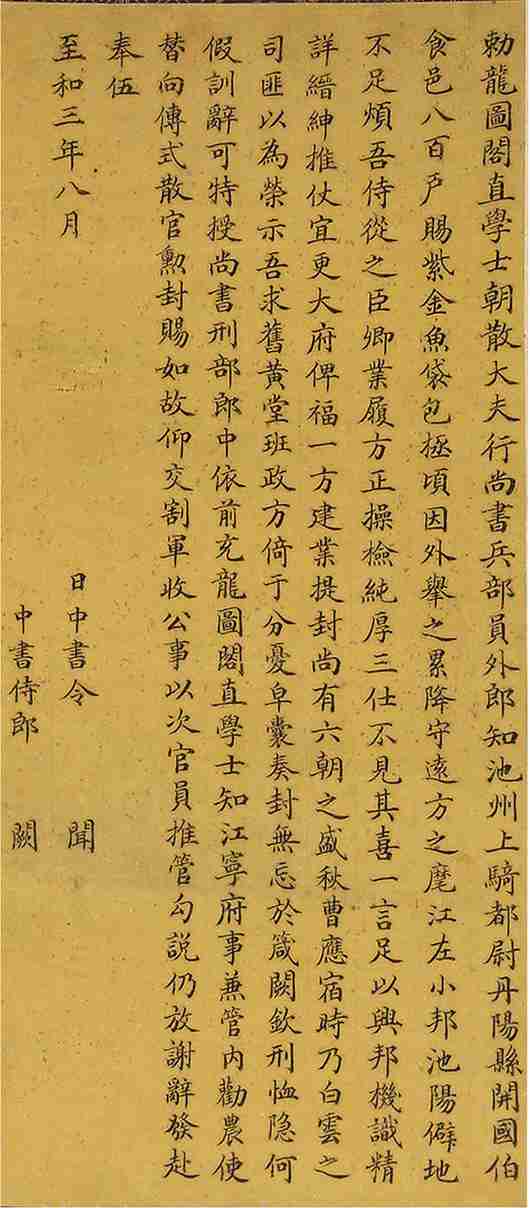 勅龍圖閣直學士朝散大夫行尚書兵部員外郎知池州上騎都尉丹陽縣開國伯
食邑八百戸賜紫金魚袋包拯頃因外舉之累降守遠方之麾江左小邦池陽僻地
不足煩吾侍從之臣卿業履方正操檢純厚三仕不見其喜一言足以興邦機識精
詳縉紳推仗宜更大府俾福一方建業提封尚有六朝之盛秋曹應宿時乃白雲之
司匪以為榮示吾求舊黃堂班政方倚于分憂皁囊奏封無忘於箴闕欽刑恤隐何
假訓辭可特授尚書刑部郎中依前充龍圖閣直學士知江寧府事兼管內勸農使
替向傳式散官勲封賜如故仰交割軍收公事以次官員推管勾説仍放謝辭發赴
奉伍
至和三年八月
日中書令 聞
中書侍郎 闕